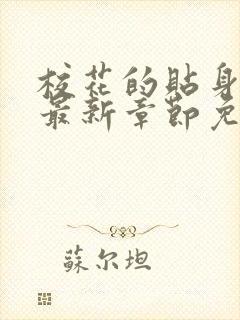 校花的贴身
最新章節免
蘇尔坦